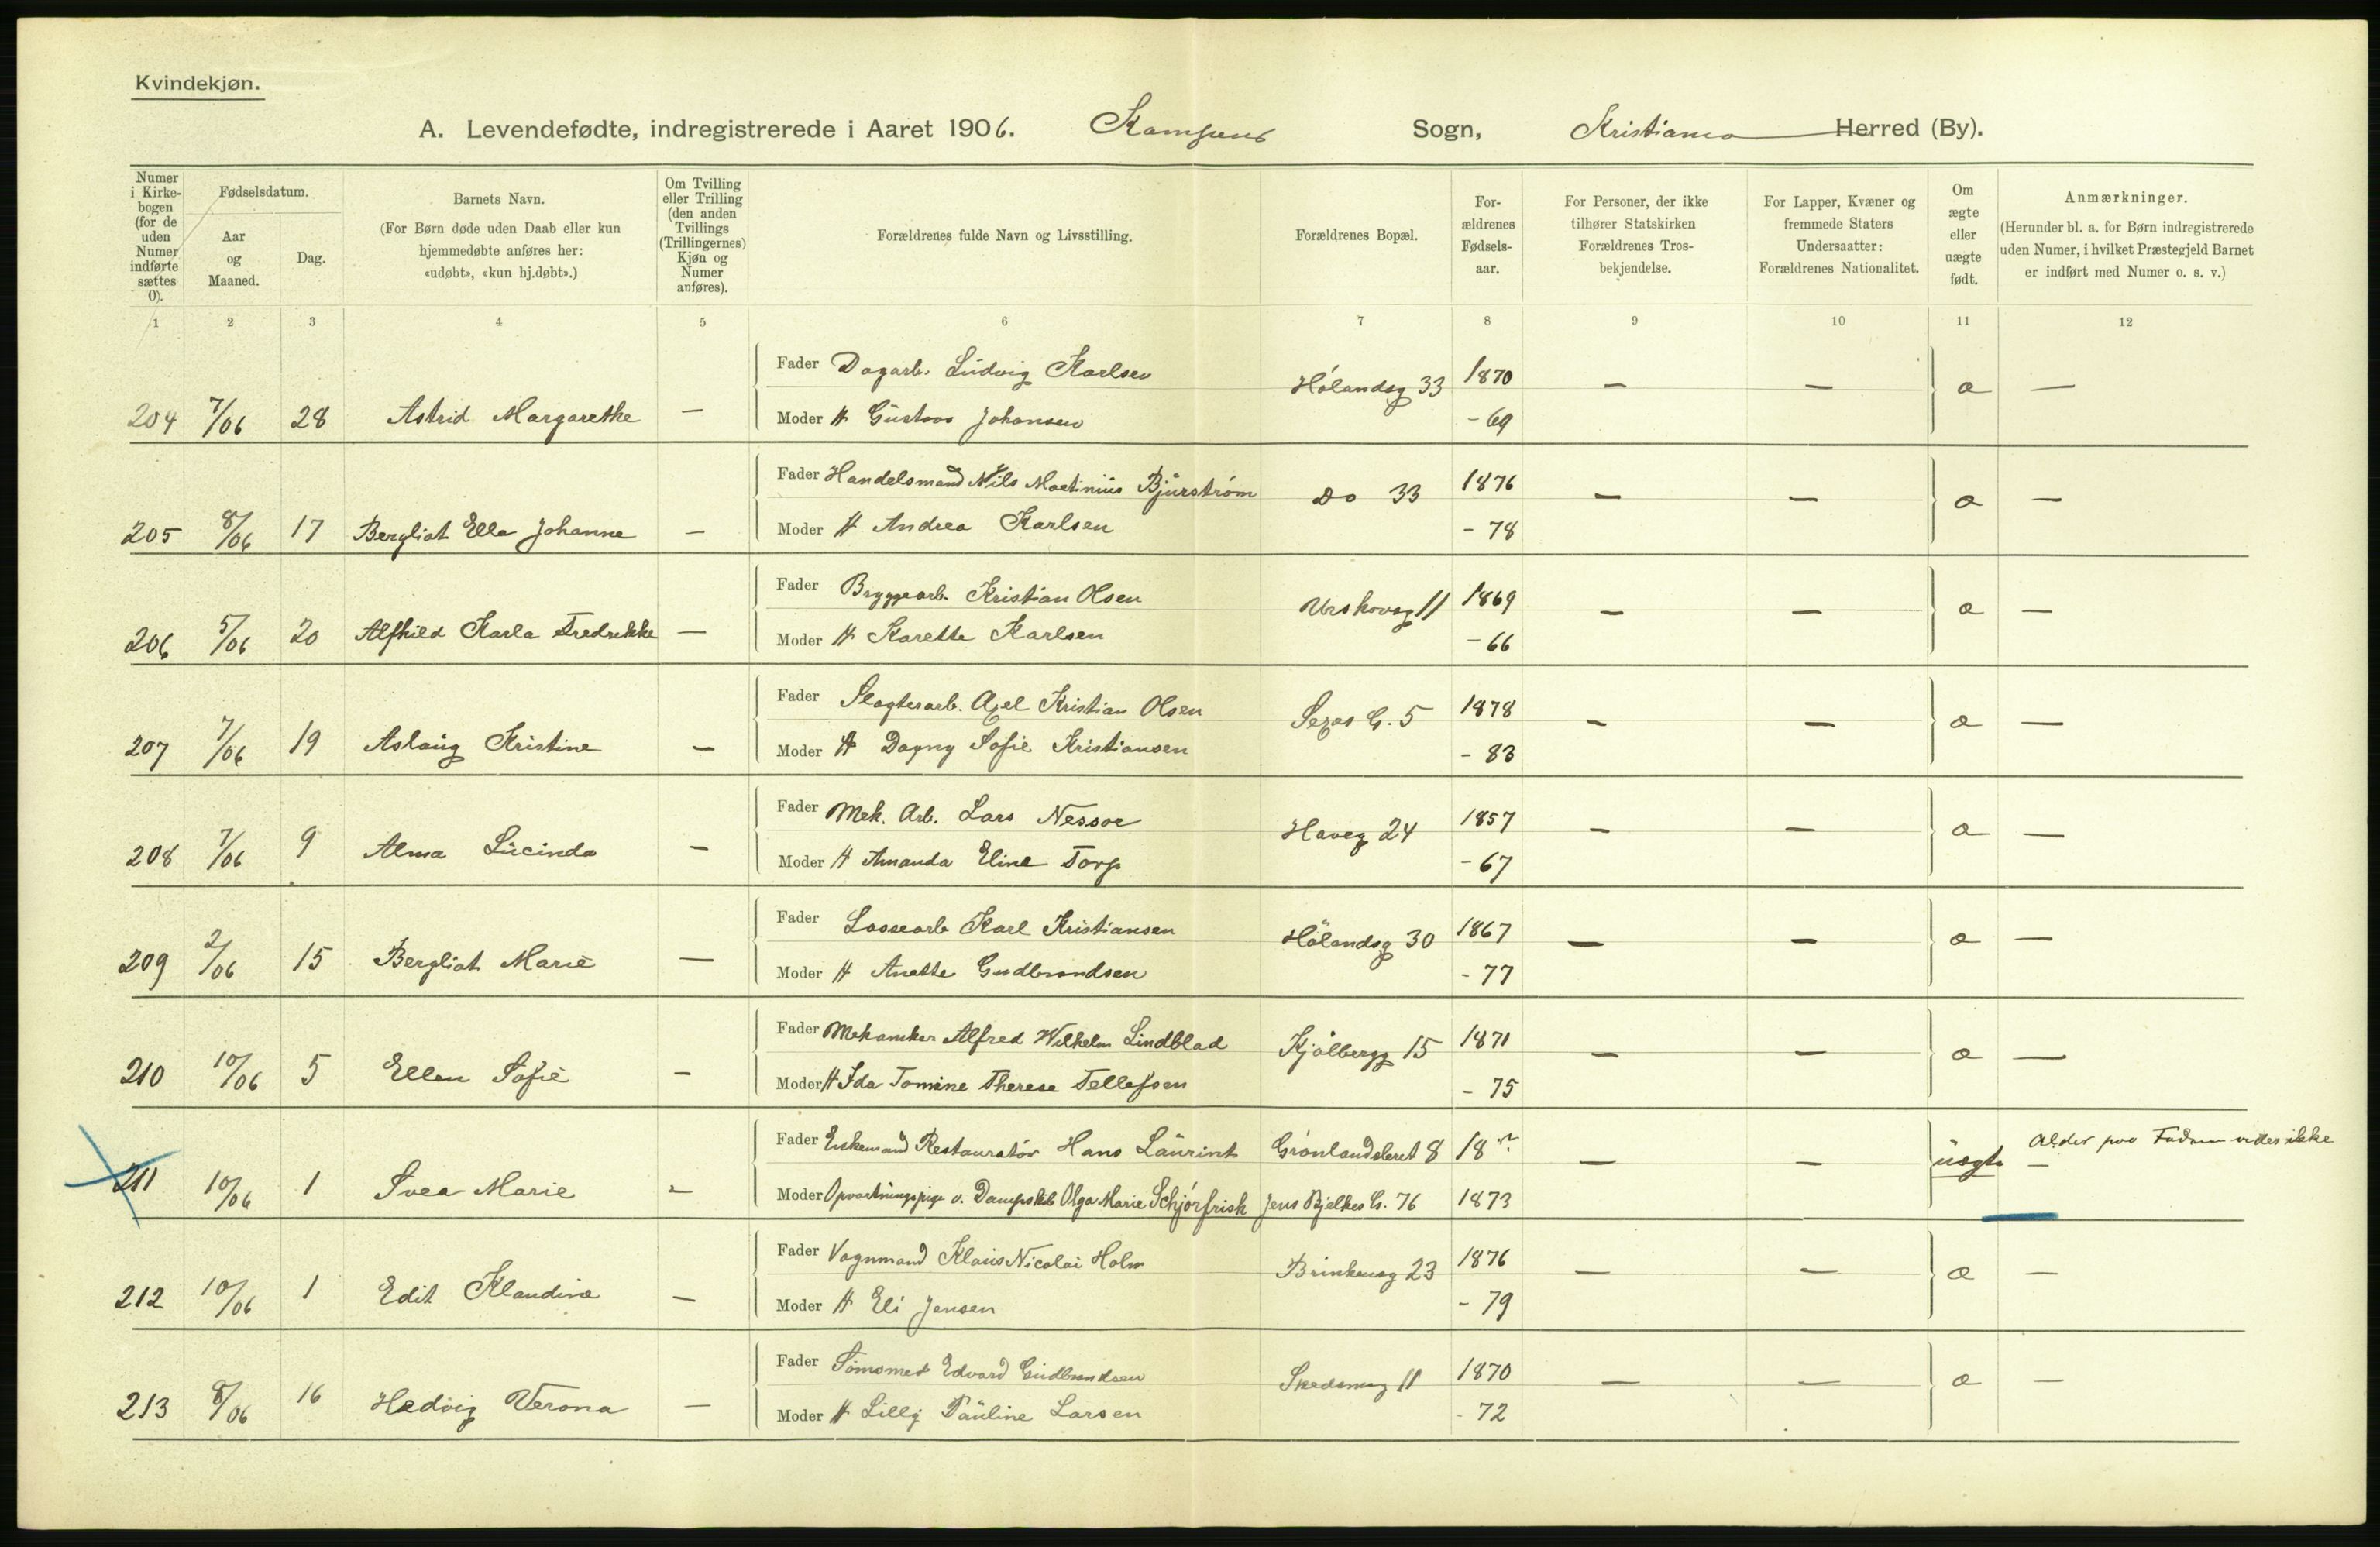 Kvindekjøn.
A. Levendefødte, indregistrerede i Aaret 1906. Kampens Sogn, Kristiania Herred (By).
Numer i Kirkebogen (for de uden Numer indførte sættes 0).
Fødselsdatum.
Aar og Maaned.
Dag.
Barnets Navn.
(For Børn døde uden Daab eller kun hjemmedøbte anføres her: «udøbt», «kun hj.døbt».)
Om Tvilling eller Trilling (den anden Tvillings (Trillingernes) Kjøn og Numer anføres).
Forældrenes fulde Navn og Livsstilling.
Forældrenes Bopæl.
For-ældrenes Fødsels-aar.
For Personer, der ikke tilhører Statskirken Forældrenes Tros-bekjendelse.
For Lapper, Kvæner og fremmede Staters Undersaatter: Forældrenes Nationalitet.
Om ægte eller uægte født.
Anmærkninger.
(Herunder bl. a. for Børn indregistrerede uden Numer, i hvilket Præstegjeld Barnet er indført med Numer o. s. v.)
1 2 3 4 5 6 7 8 9 10 11 12
Fader Dagarb. Ludvig Karlsen Hølandsg 33 1870 — — æ —
204 7/06 28 Astrid Margarethe — Moder H Gustava Johansen - 69
Fader Handelsmand Nils Martinius Bjurstrøm Do 33 1876 — — æ —
205 8/06 17 Bergliot Ella Johanne — Moder H Andrea Karlsen - 78
Fader Bryggearb. Kristian Olsen Urskovsg 11 1869 — — æ —
206 5/06 20 Alfhild Karla Fredrikke — Moder H Karette Karlsen - 66
Fader Slagterarb. Axel Kristian Olsen G. 5 1878 — — æ —
207 7/06 19 Aslaug Kristine — Moder H Dagny Sofie Kristiansen - 83
Fader Mek. Arb. Lars Nessøe Haveg 24 1857 — — æ —
208 7/06 9 Alma Lucinda — Moder H Amanda Eline Torp - 67
Fader Lossearb Karl Kristiansen Hølandsg 30 1867 — — æ —
209 2/06 15 Bergliot Marie — Moder H Anette Gudbrandsen - 77
Fader Mekaniker Alfred Wilhelm Lindblad Kjølbergg 15 1871 — — æ —
210 10/06 5 Ellen Sofie — Moder H Ida Tomine Therese Tellefsen - 75
Fader Enkemand Restauratør Hans Laurint Grønlandsleret 8 18 ? — — uægte — Alder paa Faderen vides ikke
211 10/06 1 Svea Marie — Moder Opvartningspige v. Dampskib Olga Marie Schjørfrisk Jens Bjelkes G. 76 1873
Fader Vognmand Klaus Nicolai Holm Brinkensg 23 1876 — — æ —
212 10/06 1 Edit Klaudine — Moder H Eli Jensen - 79
Fader Edvard Gudbrandsen Skedsmog 11 1870 — — æ —
213 8/06 16 Hedvig Verona — Moder H Lilly Pauline Larsen - 72